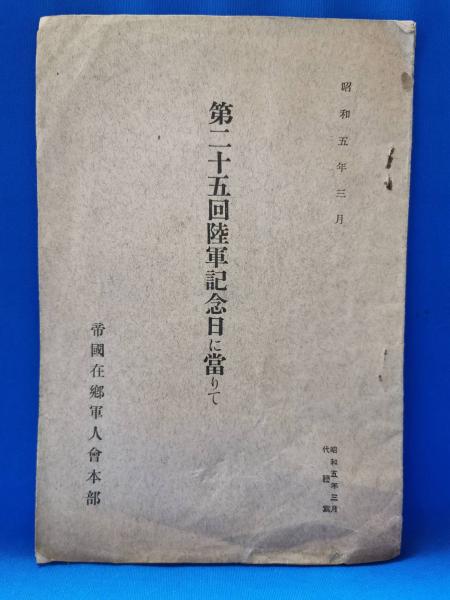 昭和五年三月
第二十五回陸軍記念日に當りて
帝國在鄕軍人會本部
昭和五年三月
代謄寫